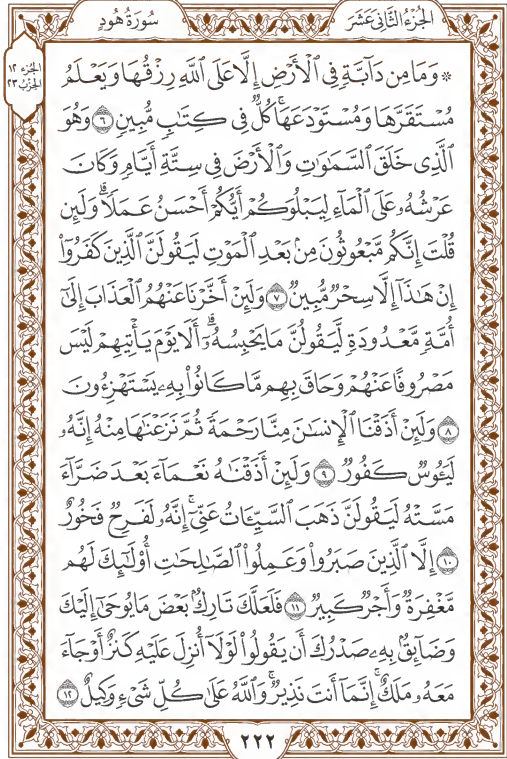 الجُزْءُ الثَّانِي عَشَرَ
سُورَةُ هُودٍ
الجزء ١٢
الحزب ٢٣
۞ وَمَا مِن دَآبَّةٖ فِي ٱلۡأَرۡضِ إِلَّا عَلَى ٱللَّهِ رِزۡقُهَا وَيَعۡلَمُ
مُسۡتَقَرَّهَا وَمُسۡتَوۡدَعَهَاۚ كُلّٞ فِي كِتَٰبٖ مُّبِينٖ ٦ وَهُوَ
ٱلَّذِي خَلَقَ ٱلسَّمَٰوَٰتِ وَٱلۡأَرۡضَ فِي سِتَّةِ أَيَّامٖ وَكَانَ
عَرۡشُهُۥ عَلَى ٱلۡمَآءِ لِيَبۡلُوَكُمۡ أَيُّكُمۡ أَحۡسَنُ عَمَلٗاۗ وَلَئِن
قُلۡتَ إِنَّكُم مَّبۡعُوثُونَ مِنۢ بَعۡدِ ٱلۡمَوۡتِ لَيَقُولَنَّ ٱلَّذِينَ كَفَرُوٓاْ
إِنۡ هَٰذَآ إِلَّا سِحۡرٞ مُّبِينٞ ٧ وَلَئِنۡ أَخَّرۡنَا عَنۡهُمُ ٱلۡعَذَابَ إِلَىٰٓ
أُمَّةٖ مَّعۡدُودَةٖ لَّيَقُولُنَّ مَا يَحۡبِسُهُۥٓۗ أَلَا يَوۡمَ يَأۡتِيهِمۡ لَيۡسَ
مَصۡرُوفًا عَنۡهُمۡ وَحَاقَ بِهِم مَّا كَانُواْ بِهِۦ يَسۡتَهۡزِءُونَ
٨ وَلَئِنۡ أَذَقۡنَا ٱلۡإِنسَٰنَ مِنَّا رَحۡمَةٗ ثُمَّ نَزَعۡنَٰهَا مِنۡهُ إِنَّهُۥ
لَيَـُٔوسٞ كَفُورٞ ٩ وَلَئِنۡ أَذَقۡنَٰهُ نَعۡمَآءَ بَعۡدَ ضَرَّآءَ
مَسَّتۡهُ لَيَقُولَنَّ ذَهَبَ ٱلسَّيِّـَٔاتُ عَنِّيٓۚ إِنَّهُۥ لَفَرِحٞ فَخُورٌ
١٠ إِلَّا ٱلَّذِينَ صَبَرُواْ وَعَمِلُواْ ٱلصَّٰلِحَٰتِ أُوْلَٰٓئِكَ لَهُم
مَّغۡفِرَةٞ وَأَجۡرٞ كَبِيرٞ ١١ فَلَعَلَّكَ تَارِكُۢ بَعۡضَ مَا يُوحَىٰٓ إِلَيۡكَ
وَضَآئِقُۢ بِهِۦ صَدۡرُكَ أَن يَقُولُواْ لَوۡلَآ أُنزِلَ عَلَيۡهِ كَنزٌ أَوۡ جَآءَ
مَعَهُۥ مَلَكٌۚ إِنَّمَآ أَنتَ نَذِيرٞۚ وَٱللَّهُ عَلَىٰ كُلِّ شَيۡءٖ وَكِيلٌ ١٢
٢٢٢